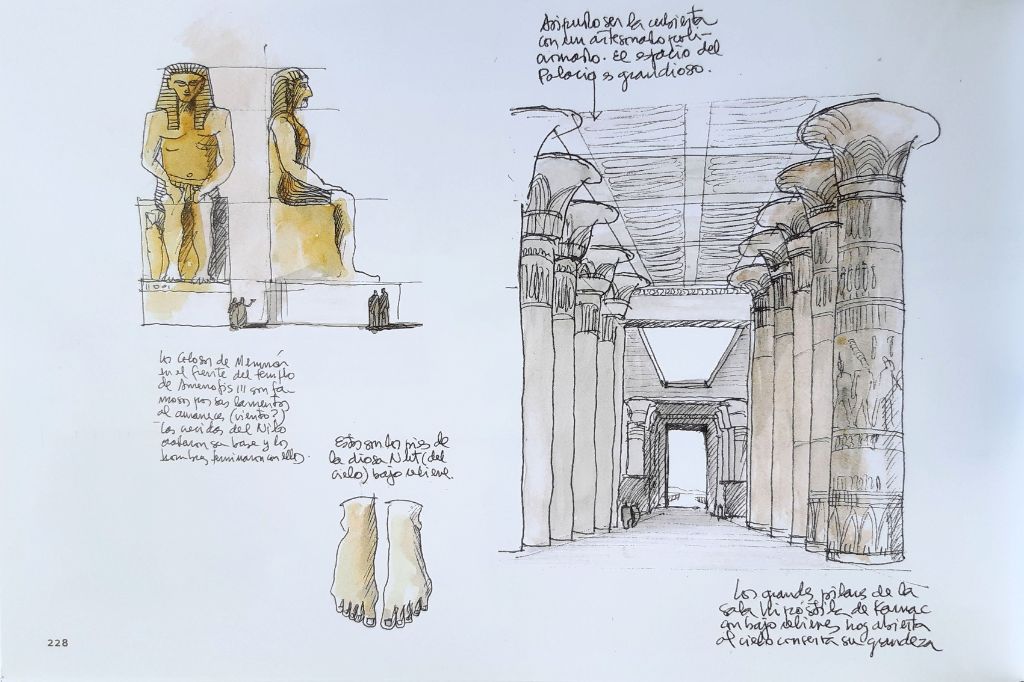 Asi pudo ser la cubierta
con un artesonado poli-
cromado. El espacio del
Palacio es grandioso.
Los Colosos de Memnón
en el frente del templo
de Amenofis III son fa-
mosos por sus lamentos
al amanecer (viento?)
Las crecidas del Nilo
su base y los
hombres terminaron con ellos.
Estos son los pies de
la diosa Nut (del
cielo) bajo relieve.
Los grandes pilares de la
sala Hipóstila de Karnac
con bajo relieves hoy abierta
al cielo conserva su grandeza
228